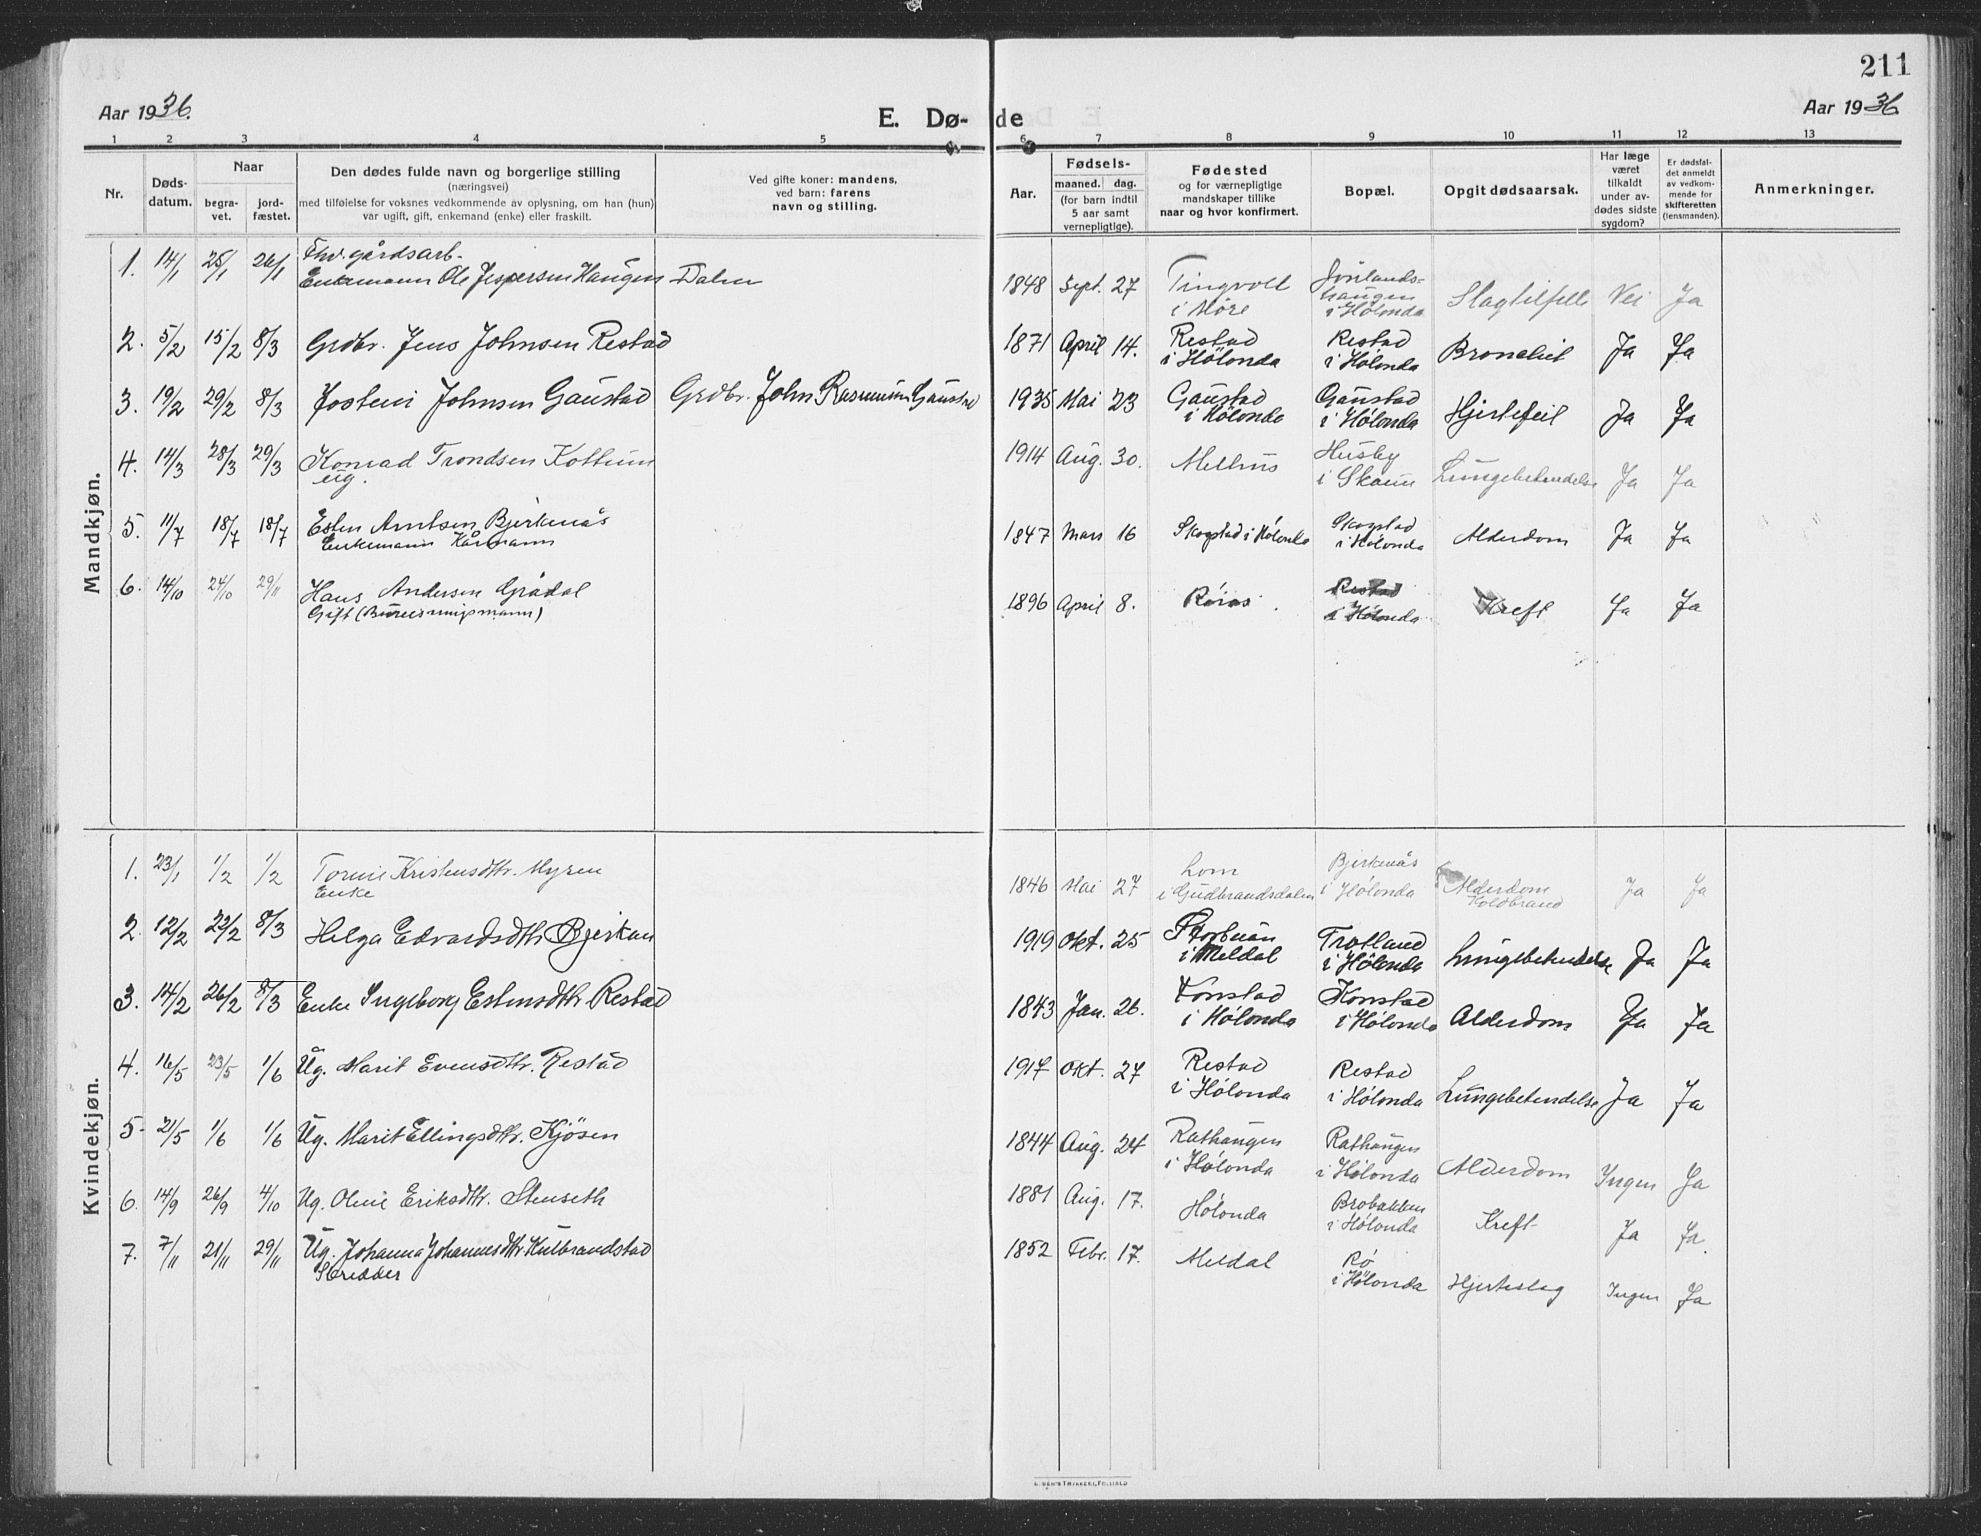 211
Aar 1936.
E. Dø- de
Aar 1936
1 2 3 4 5 6 7 8 9 10 11 12 13
Nr.
Døds-
datum.
Naar
begra-
vet.
jord-
fæstet.
Den dødes fulde navn og borgerlige stilling
(næringsvei)
med tilføielse for voksnes vedkommende av oplysning, om han (hun)
var ugift, gift, enkemand (enke) eller fraskilt.
Ved gifte koner: mandens,
ved barn: farens
navn og stilling.
Aar.
Fødsels-
maaned. dag.
(for barn indtil
5 aar samt
vernepligtige).
Fødested
og for værnepligtige
mandskaper tillike
naar og hvor konfirmert.
Bopæl.
Opgit dødsaarsak.
Har læge
været
tilkaldt
under av-
dødes sidste
sygdom?
Er dødsfal-
det anmeldt
av vedkom-
mende for
skifteretten
(lensmanden).
Anmerkninger.
Mandkjøn.
1. 14/1 25/1 26/1 Fhv. gårdsarb.
Enkemann Ole Jespersen Haugen Dalen 1848 Sept. 27 Tingvoll
i Møre
haugen
i Hølonda Slagtilfelle Nei Ja
2. 5/2 15/2 8/3 Grdbr. Jens Johnsen Restad 1871 April 14. Restad
i Hølonda Restad
i Hølonda Bronchit Ja Ja
3. 19/2 29/2 8/3 Jostein Johnsen Gaustad Grdbr. John Rasmussen Gaustad 1935 Mai 23 Gaustad
i Hølonda Gaustad
i Hølonda Hjertefeil Ja Ja
4. 14/3 28/3 29/3 Konrad Trondsen Kottum
ug. 1914 Aug. 30. Melhus Husby
i Skaun Lungebetendelse Ja Ja
5. 11/7 18/7 18/7 Esten Arntsen Bjerkenås
Enkemann Kårmann 1847 Mars 16 Skogstad i Hølonda Skogstad
i Hølonda Alderdom Ja Ja
6. 14/10 24/10 29/11 Hans Andersen Grådal
Gift (Bureisningsmann) 1896 April 8. Røros. Restad
i Hølonda Kreft Ja Ja
Kvindekjøn.
1. 23/1 1/2 1/2 Tomine Kristensdtr. Myren
Enke 1846 Mai 27 Lom
i Gudbrandsdalen Bjerkenås
i Hølonda Alderdom
Koldbrand Ja Ja
2. 12/2 22/2 8/3 Helga Edvardsdtr. Bjerkan 1919 Okt. 25
i Meldal Trotland
i Hølonda Lungebetendelse Ja Ja
3. 14/2 26/2 8/3 Enke Ingeborg Estensdtr. Restad 1843 Jan. 26. Konstad
i Hølonda Konstad
i Hølonda Alderdom Ja Ja
4. 16/5 23/5 1/6 Ug. Marit Evensdtr. Restad 1917 Okt. 27 Restad
i Hølonda Restad
i Hølonda Lungebetendelse Ja Ja
5. 21/5 1/6 1/6 Ug. Marit Ellingsdtr. Kjøsen 1844 Aug. 24 Rathaugen
i Hølonda Rathaugen
i Hølonda Alderdom Ingen Ja
6. 14/9 26/9 4/10 Ug. Oline Eriksdtr. Stenseth 1881 Aug. 17. Hølonda Brobakken
i Hølonda Kreft Ja Ja
7. 7/11 21/11 29/11 Ug. Johanna Johannesdtr. Hulbrandstad
Skredder 1852 Febr. 17. Meldal Rø
i Hølonda Hjerteslag Ingen Ja